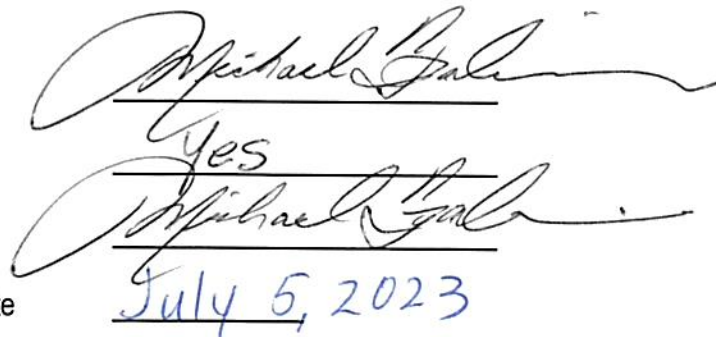 Michael
Yes
Michael
te July 5, 2023